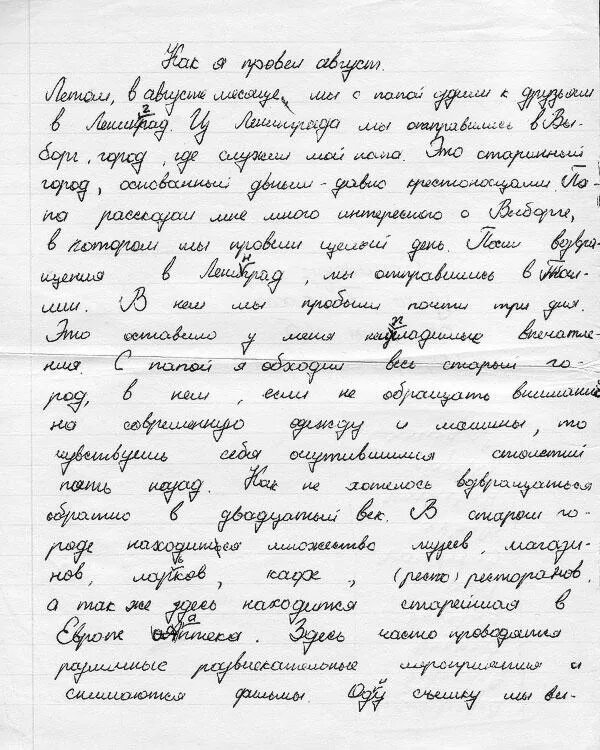 Как я провел август.
Летом, в августе месяце, мы с папой ездили к друзьям
в Ленинград. Из Ленинграда мы отправились в Вы-
борг, город, где служил мой папа. Это старинный
город, основанный давным-давно крестоносцами. Па-
па рассказал мне много интересного о Выборге,
в котором мы провели целый день. После возвра-
щения в Ленинград, мы отправились в Тал-
лин. В нем мы пробыли почти три дня.
Это оставило у меня неизгладимые впечатле-
ния. С папой я обходил весь старый го-
род, в нем, если не обращать внимание
на современную одежду и машины, то
чувствуешь себя очутившимся столетий
пять назад. Как не хотелось возвращаться
обратно в двадцатый век. В старом го-
роде находится множество музеев, магази-
нов, ларьков, кафе, (ресто) ресторанов,
а так же здесь находится старейшая в
Европе Аптека. Здесь часто проводятся
различные развлекательные мероприятия и
снимаются фильмы. Одну съемку мы ви-